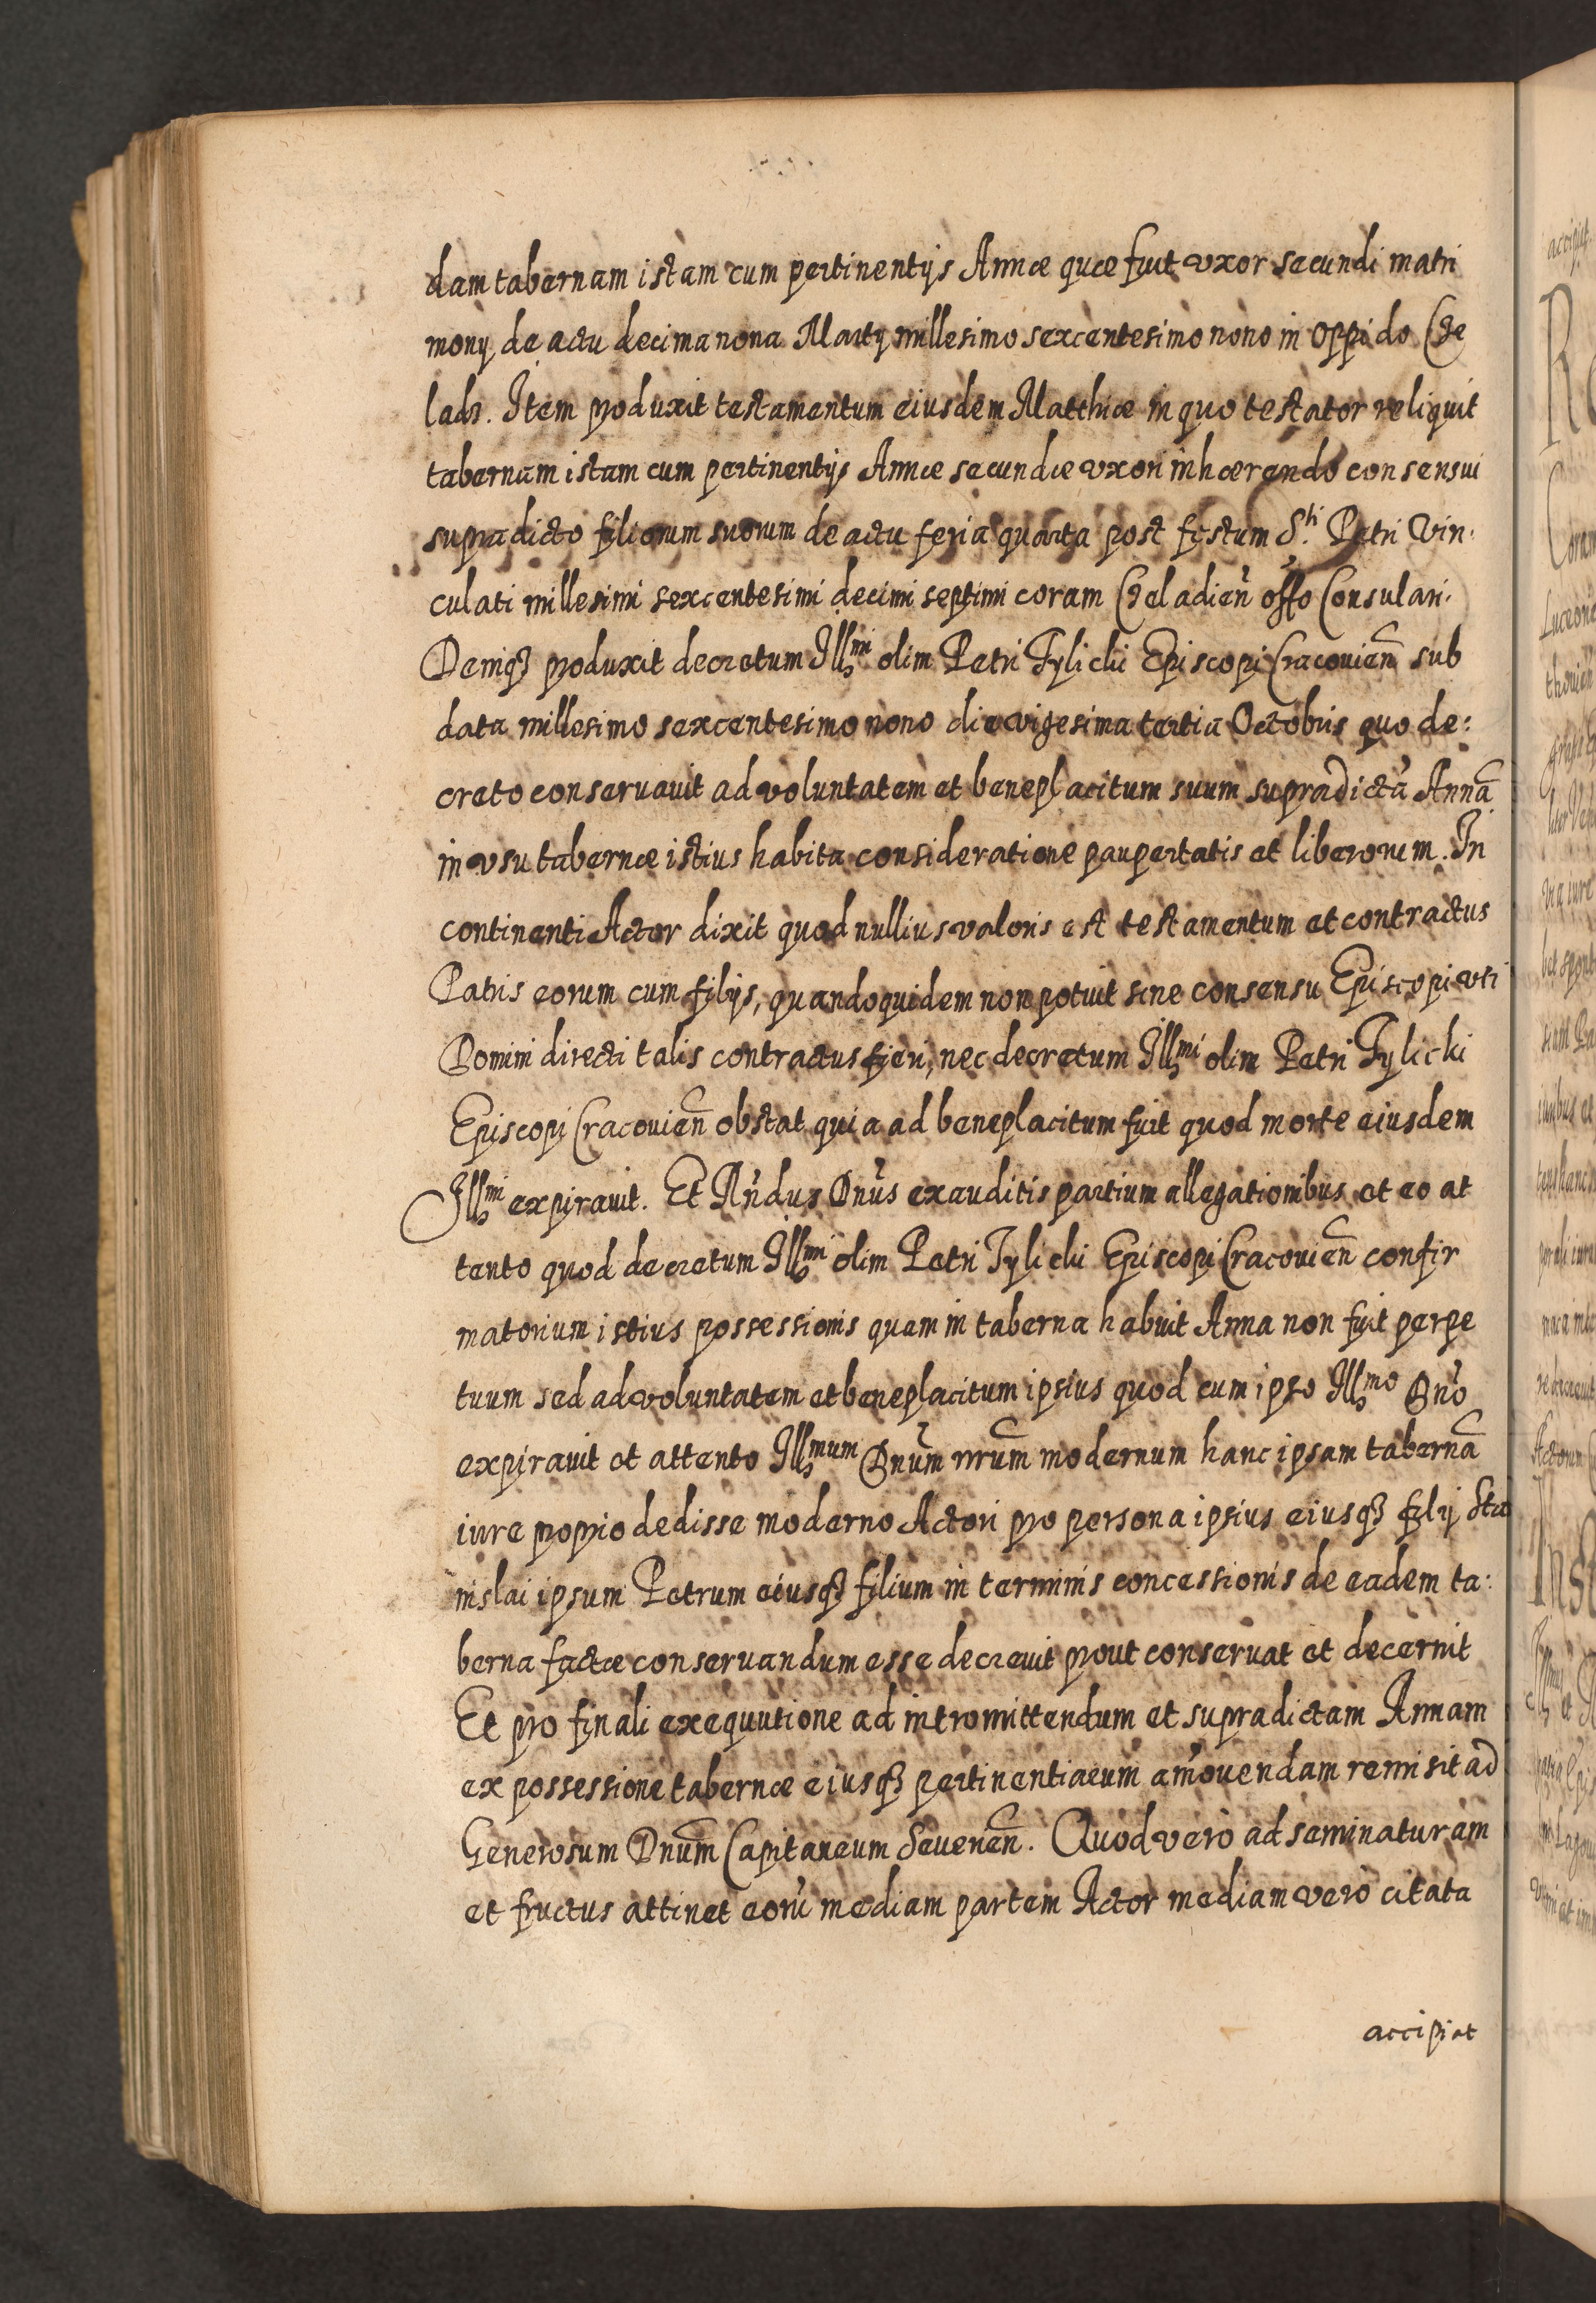 dam tabernam istam cum pertinentijs Annæ quæ fuit vxor secundi matri
monij de actu decima nona Martij millesimo sexcentesimo nono in oppido Cze
ladz. Item produxit testamentum eiusdem Matthiæ in quo testator reliquit
tabernam istam cum pertinentijs Annæ secundæ vxori inhærendo consensui
supradicto filiorum suorum de actu feria quarta post festum S.ti Petri Vin:
culati millesimi sexcentesimi decimi septimi coram Czeladien̄ offo Consulari.
Deniq3 produxit decretum Illmi olim Petri Tylicki Episcopi Cracouien̄ sub
data millesimo sexcentesimo nono die vigesima tertia Octobris quo de:
creto conseruauit ad voluntatem et beneplacitum suum supradictā Annā
in vsu tabernæ istius habita consideratione paupertatis et liberorum. In
continenti Actor dixit quod nullius valoris est testamentum et contractus
Patris eorum cum filijs, quandoquidem non potuit sine consensu Episcopi vti
Domini directi talis contractus fieri, nec decretum Illmi olim Petri Tylicki
Episcopi Cracouien̄ obstat quia ad beneplacitum fuit quod morte eiusdem
Illmi expirauit. Et Rn̄dus Dn̄us exauditis partium allegationibus et eo at
tento quod decretum Illmi olim Petri Tylicki Episcopi Cracouien̄ confir
matorium istius possessionis quam in taberna habuit Anna non fuit perpe
tuum sed ad voluntatem et beneplacitum ipsius quod cum ipso Illmo Dn̄o
expirauit et attento Illmum Dnum̄ nrum̄ modernum hanc ipsam tabernā
iure proprio dedisse moderno Actori pro persona ipsius eiusq3 filij Sta
nislai ipsum Petrum eiusq3 filium in terminis concessionis de eadem ta:
berna factæ conseruandum esse decreuit prout conseruat et decernit
Et pro finali exequutione ad intromittendum et supradictam Annam
ex possessione tabernæ eiusq3 pertinentiarum amouendam remisit ad
Generosum Dnum̄ Capitaneum Seuerien̄. Quod vero ad seminaturam
et fructus attinet eorū mediam partem Actor mediam vero citata
accipiat